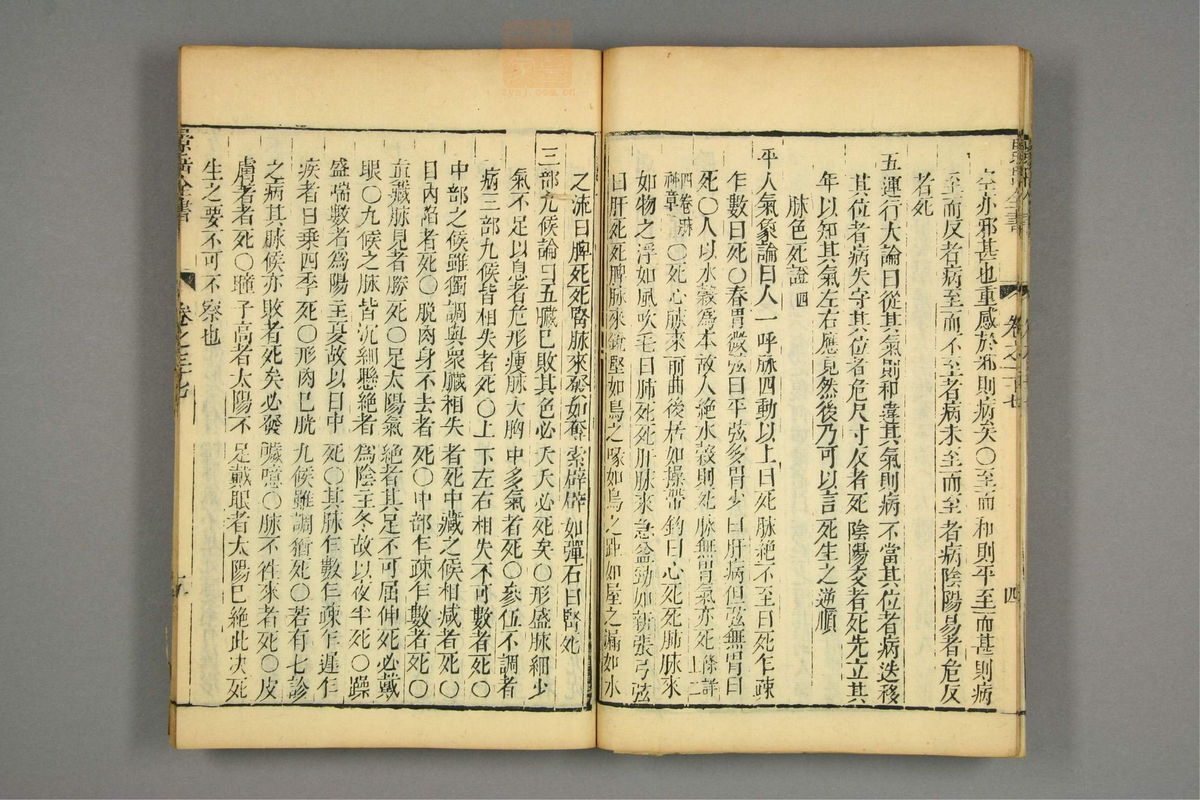 亦邪甚也重感於邪則病矣〇至而和則平至而甚則病
至而反者病至而不至者病未至而至者病陰陽易者危反
者死
五運行大論曰從其氣則和違其氣則病不當其位者病迭移
其位者病失守其位者危尺寸反者死陰陽交者死先立其
年以知其氣左右應見然後乃可以言死生之逆順
脉色死證四
平人氣象論曰人一呼脉四動以上曰死脉絶不至曰死乍疎
乍數曰死〇春胃微弦曰平弦多胃少曰肝病但弦無胃曰
死〇人以水穀為本故人絶水穀則死脉無胃氣亦死
〇死心脉來前曲後居如操帶鈎曰心死死肺脉來
如物之浮如風吹毛曰肺死死肝脉來急益勁如新張弓弦
曰肝死死脾脉來銳堅如烏之喙如鳥之距如屋之漏如水
景岳全書 卷之三十七 四
之流曰脾死死腎脉來發如奪索辟辟如彈石曰腎死
三部九候論曰五臟已敗其色必夭夭必死矣〇形盛脉細少
氣不足以息者危形瘦脉大胸中多氣者死〇參伍不調者
病三部九候皆相失者死〇上下左右相失不可數者死〇
中部之候雖獨調與衆臟相失者死中藏之候相减者死〇
目內陷者死〇脱肉身不去者死〇中部乍疎乍數者死〇
眞臟脉見者勝死〇足太陽氣絶者其足不可屈伸死必戴
眼〇九候之脉皆沉細懸絶者為陰主冬故以夜半死〇躁
盛喘數者為陽主夏故以日中死〇其脉乍數乍疎乍遲乍
疾者日乗四季死〇形肉已脱九候雖調猶死〇若有七診
之病其脉候亦敗者死矣必發噦噫〇脉不徃來者死〇皮
膚著者死〇瞳子高者太陽不足戴眼者太陽已絶此决死
生之要不可不察也
景岳全書 卷之三十七 五